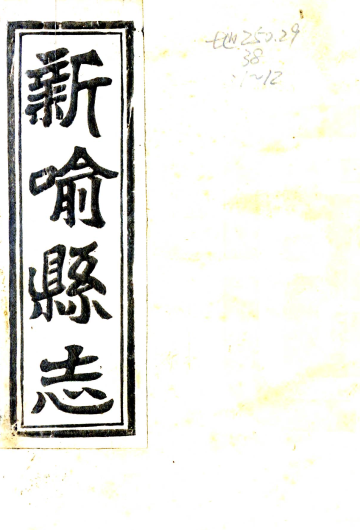 新喻縣志
地250.29
38
1~12